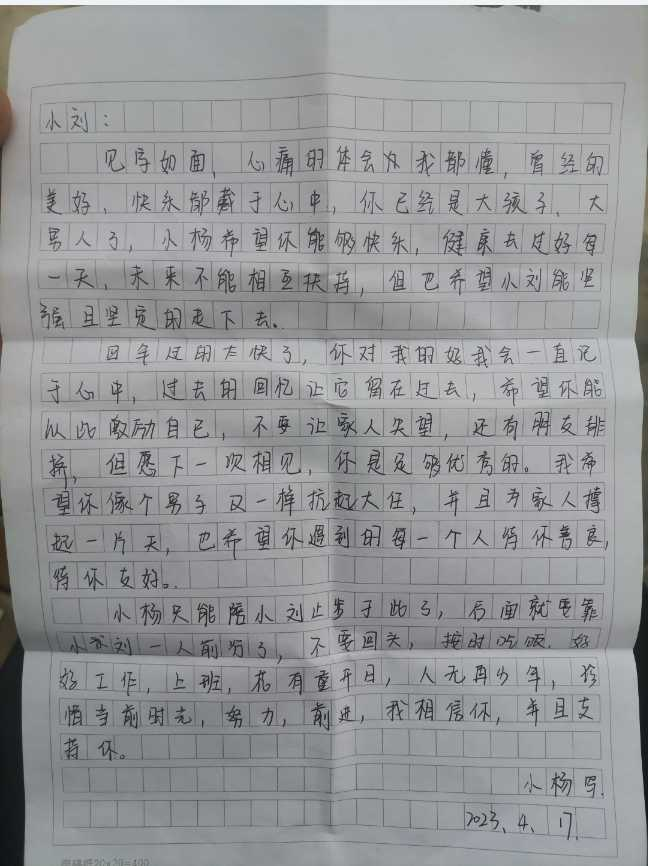 小刘：
见字如面，心痛的体会为我都懂，曾经的
美好、快乐都藏于心中，你已经是大孩子、大
男人了，小杨希望你能够快乐，健康去过好每
一天，未来不能相互扶持，但也希望小刘能坚
强且坚定的走下去。
日年过的太快了，你对我的好我会一直记
于心中，过去的回忆让它留在过去，希望你能
以此激励自己，不要让家人失望，还有朋友排
挤，但愿下一次相见，你是足够优秀的。我希
望你像个男子汉一样抗起大任，并且为家人撑
起一片天，也希望你遇到的每一个人待你善良，
待你友好。
小杨只能陪小刘止步于此了，后面就要靠
小刘一人前行了，不要回头，按时吃饭，好
好工作，上班，花有重开日，人无再少年，珍
惜当前时光，努力，前进，我相信你，并且支
持你。
小杨写.
2023、4、17.
20×20=400